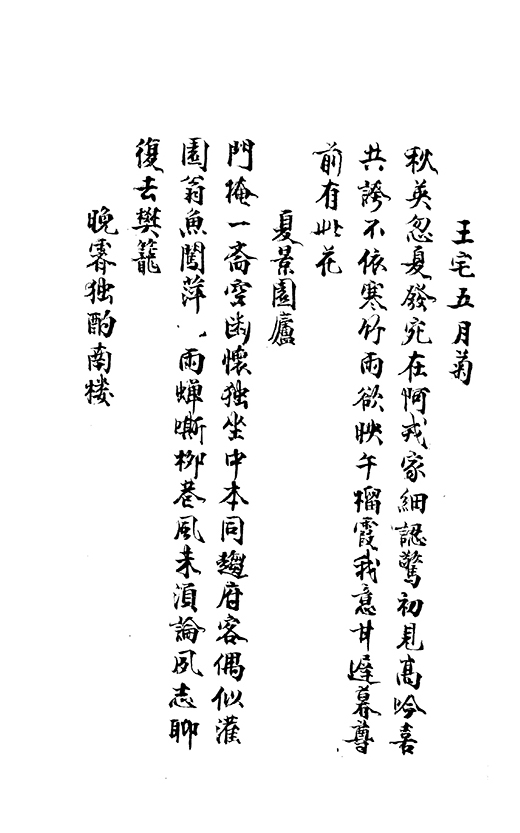 王宅五月菊
秋英忽夏發宛在阿戎家細認驚初見高吟喜
共誇不依寒竹雨欲映午榴霞我意甘遲暮尊
前有此花
夏景園廬
門掩一齋空幽懷独坐中本同趨府客偶似灌
園翁魚闖萍雨蟬嘶柳巷風未須論夙志聊
復去樊籠
晚霽独酌南楼